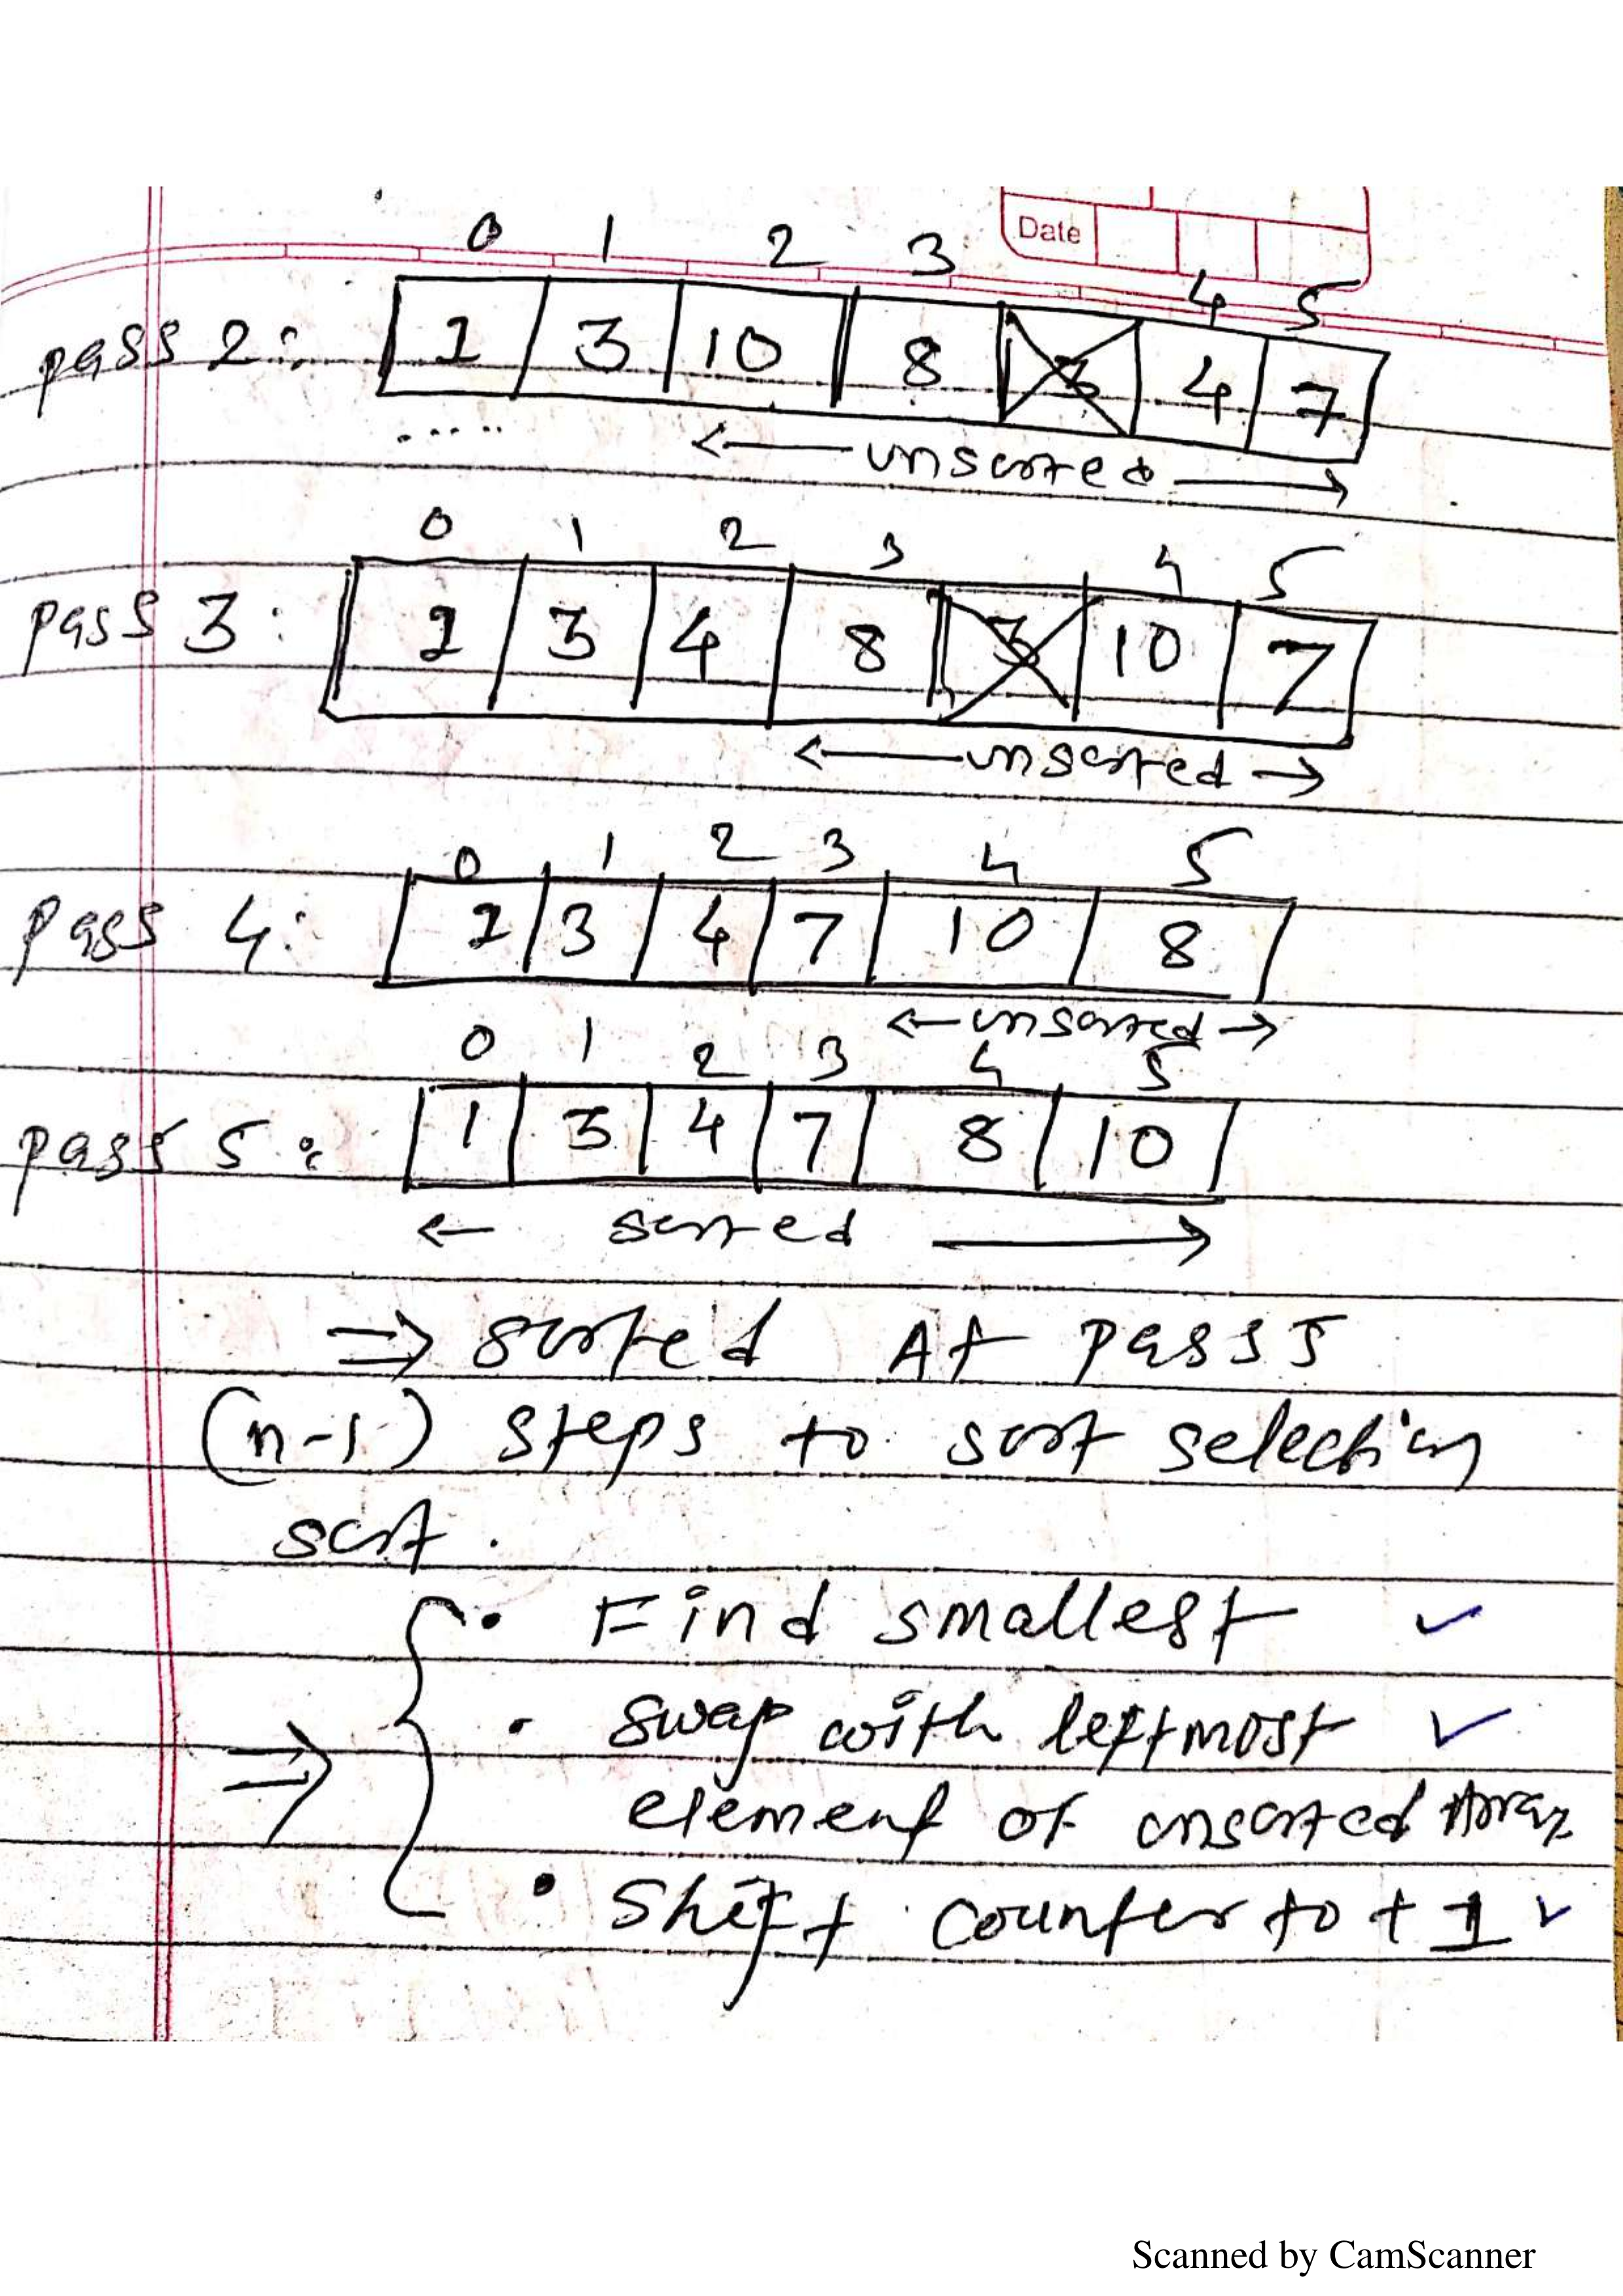 Date
0 1 2 3 4 5
pass 2: 1 3 10 8 3 4 7
unsorted
0 1 2 3 4 5
pass 3: 1 3 4 8 3 10 7
unsorted
0 1 2 3 4 5
pass 4: 1 3 4 7 10 8
unsorted
0 1 2 3 4 5
pass 5: 1 3 4 7 8 10
sorted
⇒ sorted At pass 5
(n-1) steps to sort selection
sort.
• Find smallest ✓
• swap with leftmost ✓
⇒ element of unsorted Array
• Shift counter to + 1 ✓
Scanned by CamScanner